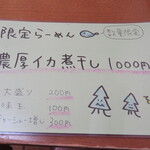 限定らーめん 数量限定
濃厚イカ煮干し 1000円
大盛り 200円
味玉 100円
チャーシュー増し 300円